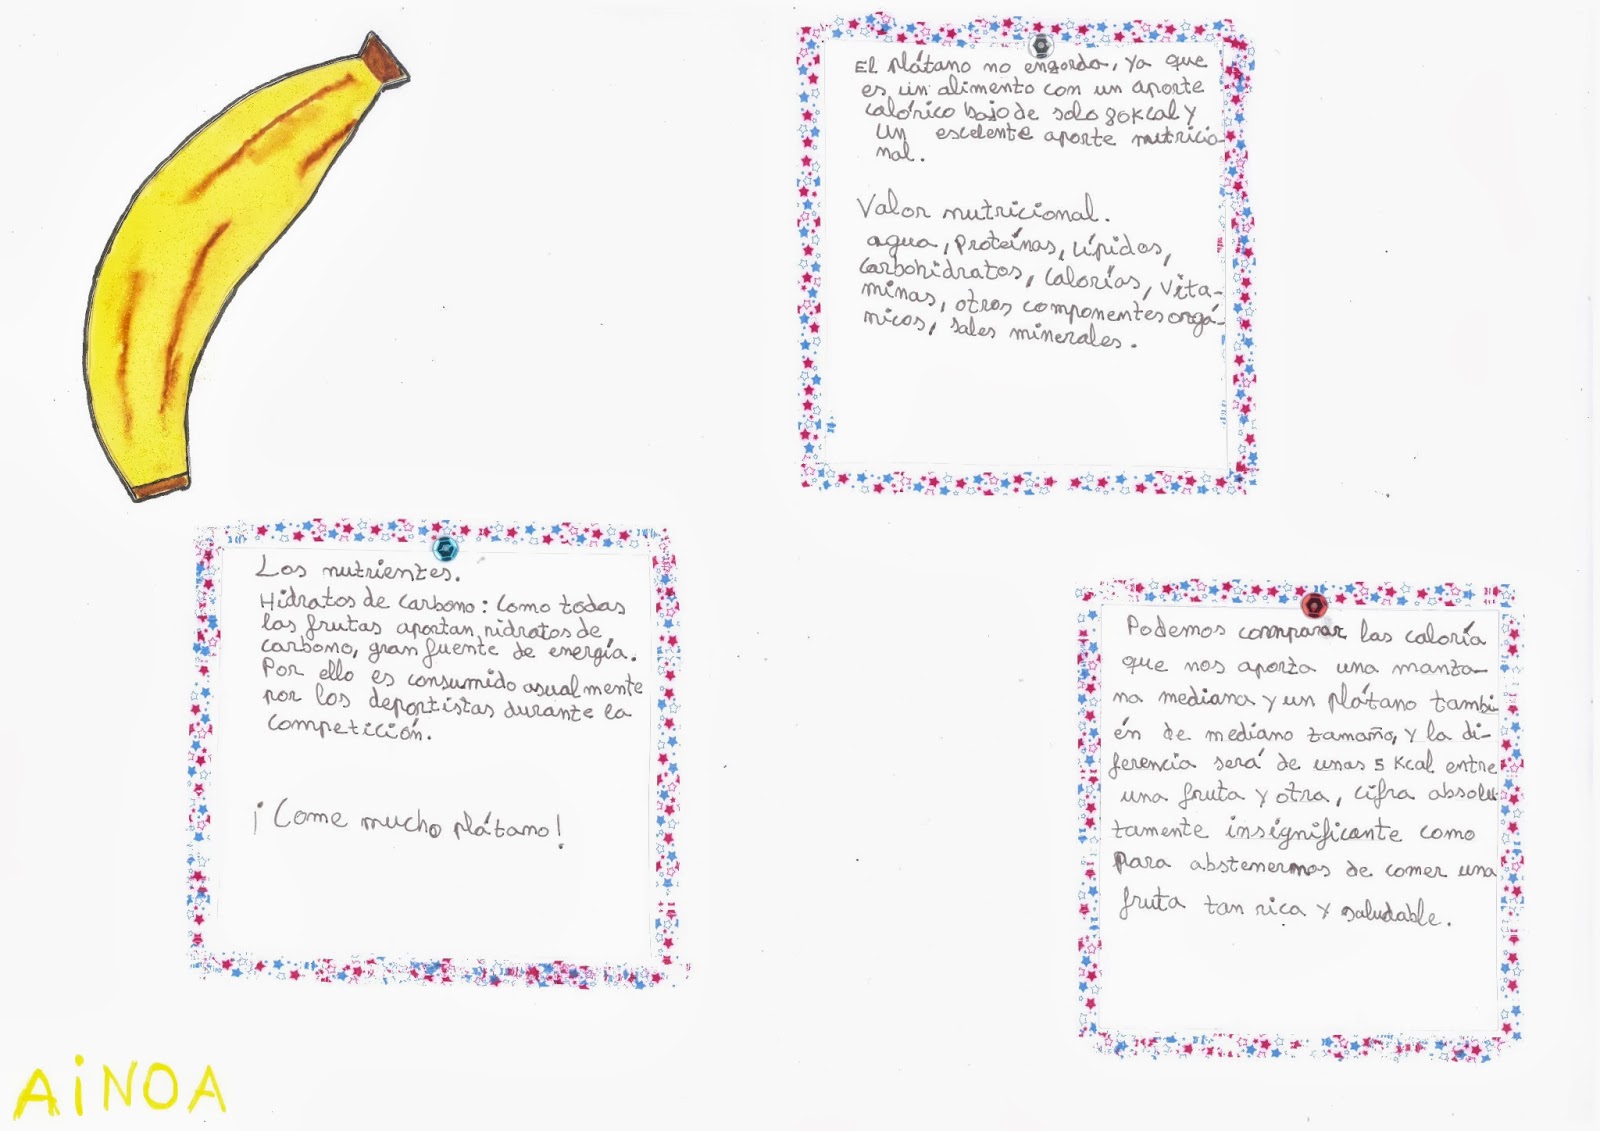 El plátano no engorda, ya que
es un alimento con un aporte
calórico bajo de solo 80Kcal y
un escelente aporte nutricio-
nal.
Valor nutricional.
agua, proteínas, lípidos,
carbohidratos, calorías, vita-
minas, otros componentes orgá-
nicos, sales minerales.
Los nutrientes.
Hidratos de carbono: Como todas
las frutas aportan hidratos de
carbono, gran fuente de energía.
Por ello es consumido asualmente
por los deportistas durante la
competición.
¡Come mucho plátano!
Podemos comparar las caloría
que nos aporta una manza-
na mediana y un plátano tambi-
én de mediano tamaño, y la di-
ferencia será de unas 5 Kcal entre
una fruta y otra, cifra absolu
tamente insignificante como
para abstenermos de comer una
fruta tan rica y saludable.
AiNOA